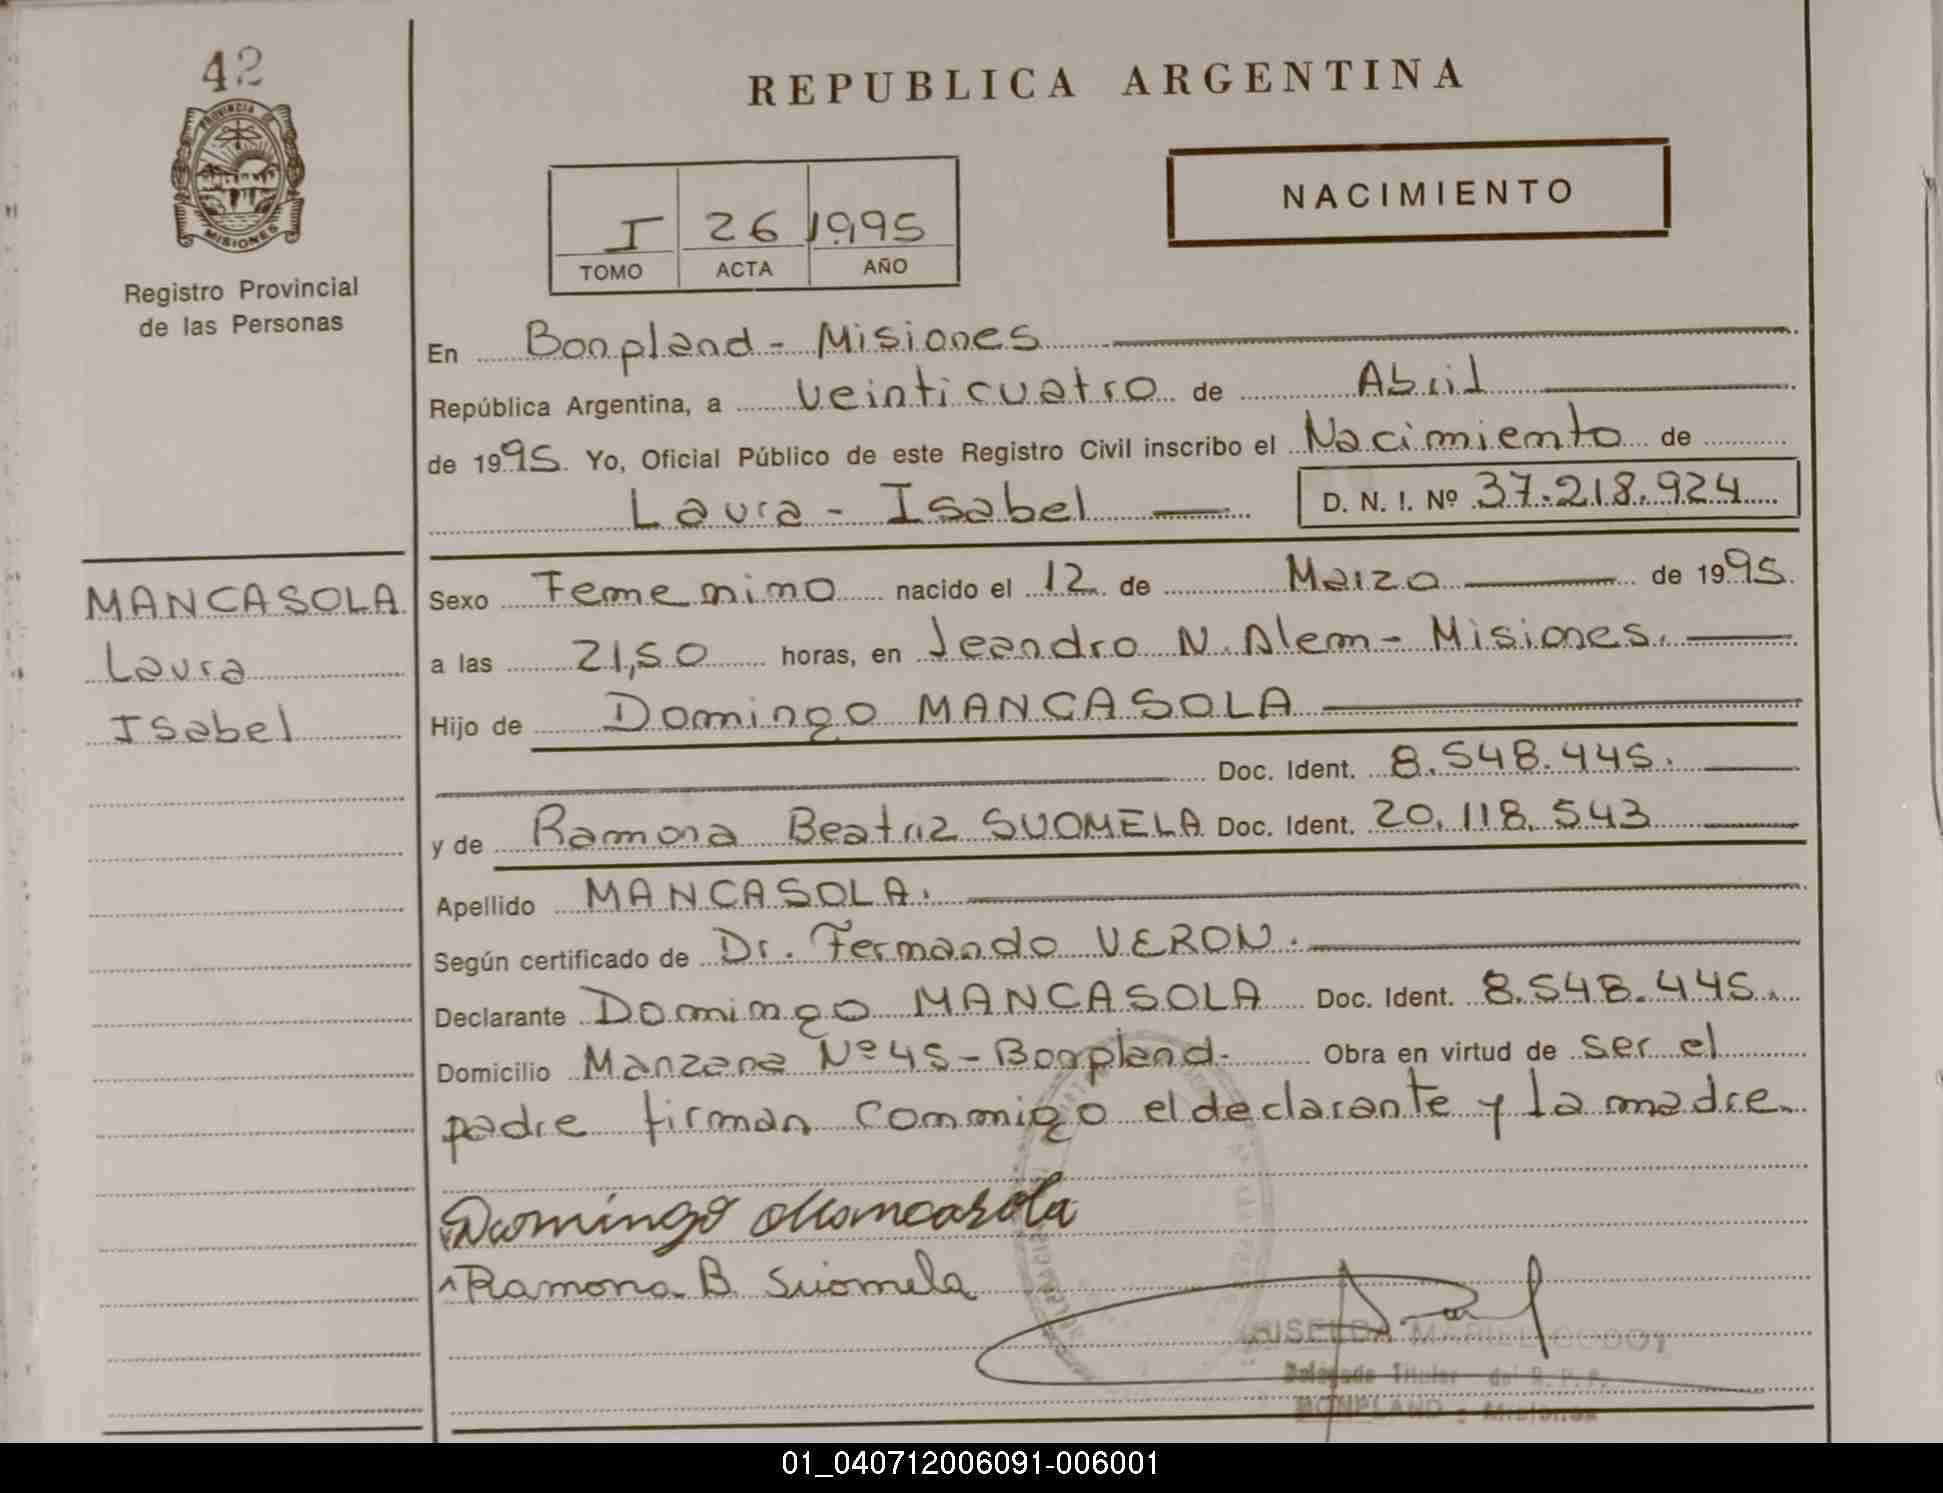 42
PROVINCIA DE
MISIONES
Registro Provincial
de las Personas
REPUBLICA ARGENTINA
NACIMIENTO
I 26 1995
TOMO ACTA AÑO
En Bonpland - Misiones
República Argentina, a veinticuatro de Abril
de 1995. Yo, Oficial Público de este Registro Civil inscribo el Nacimiento de
Laura - Isabel D. N. I. Nº 37.218.924
MANCASOLA
Laura
Isabel
Sexo Femenino nacido el 12 de Marzo de 1995.
a las 21,50 horas, en Leandro N. Alem - Misiones.
Hijo de Domingo MANCASOLA
Doc. Ident. 8.548.445.
y de Ramona Beatriz SUOMELA Doc. Ident. 20.118.543
Apellido MANCASOLA.
Según certificado de Dr. Fernando VERON.
Declarante Domingo MANCASOLA Doc. Ident. 8.548.445.
Domicilio Manzana Nº 45 - Bonpland. Obra en virtud de ser el
padre firman conmigo el declarante y la madre.
Domingo Mancasola
Ramona B. Suomela
GODOY
Delegada Titular del R. P. P.
BONPLAND - Misiones
01_040712006091-006001